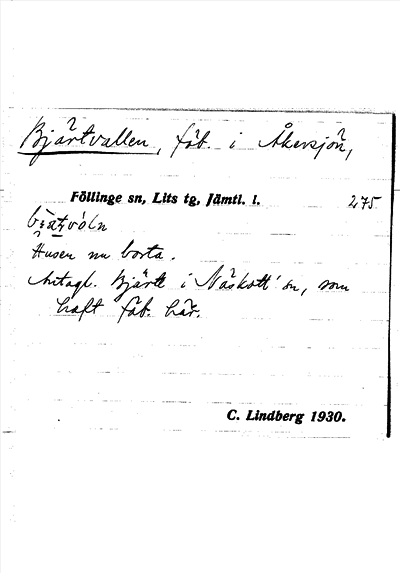 Bjärtvallen, fäb. i Åkersjön,
Föllinge sn, Lits tg, Jämtl. l. 275
Husen nu borta.
Antagl. Bjärte i Näskott sn, som
haft fäb. här.
C. Lindberg 1930.